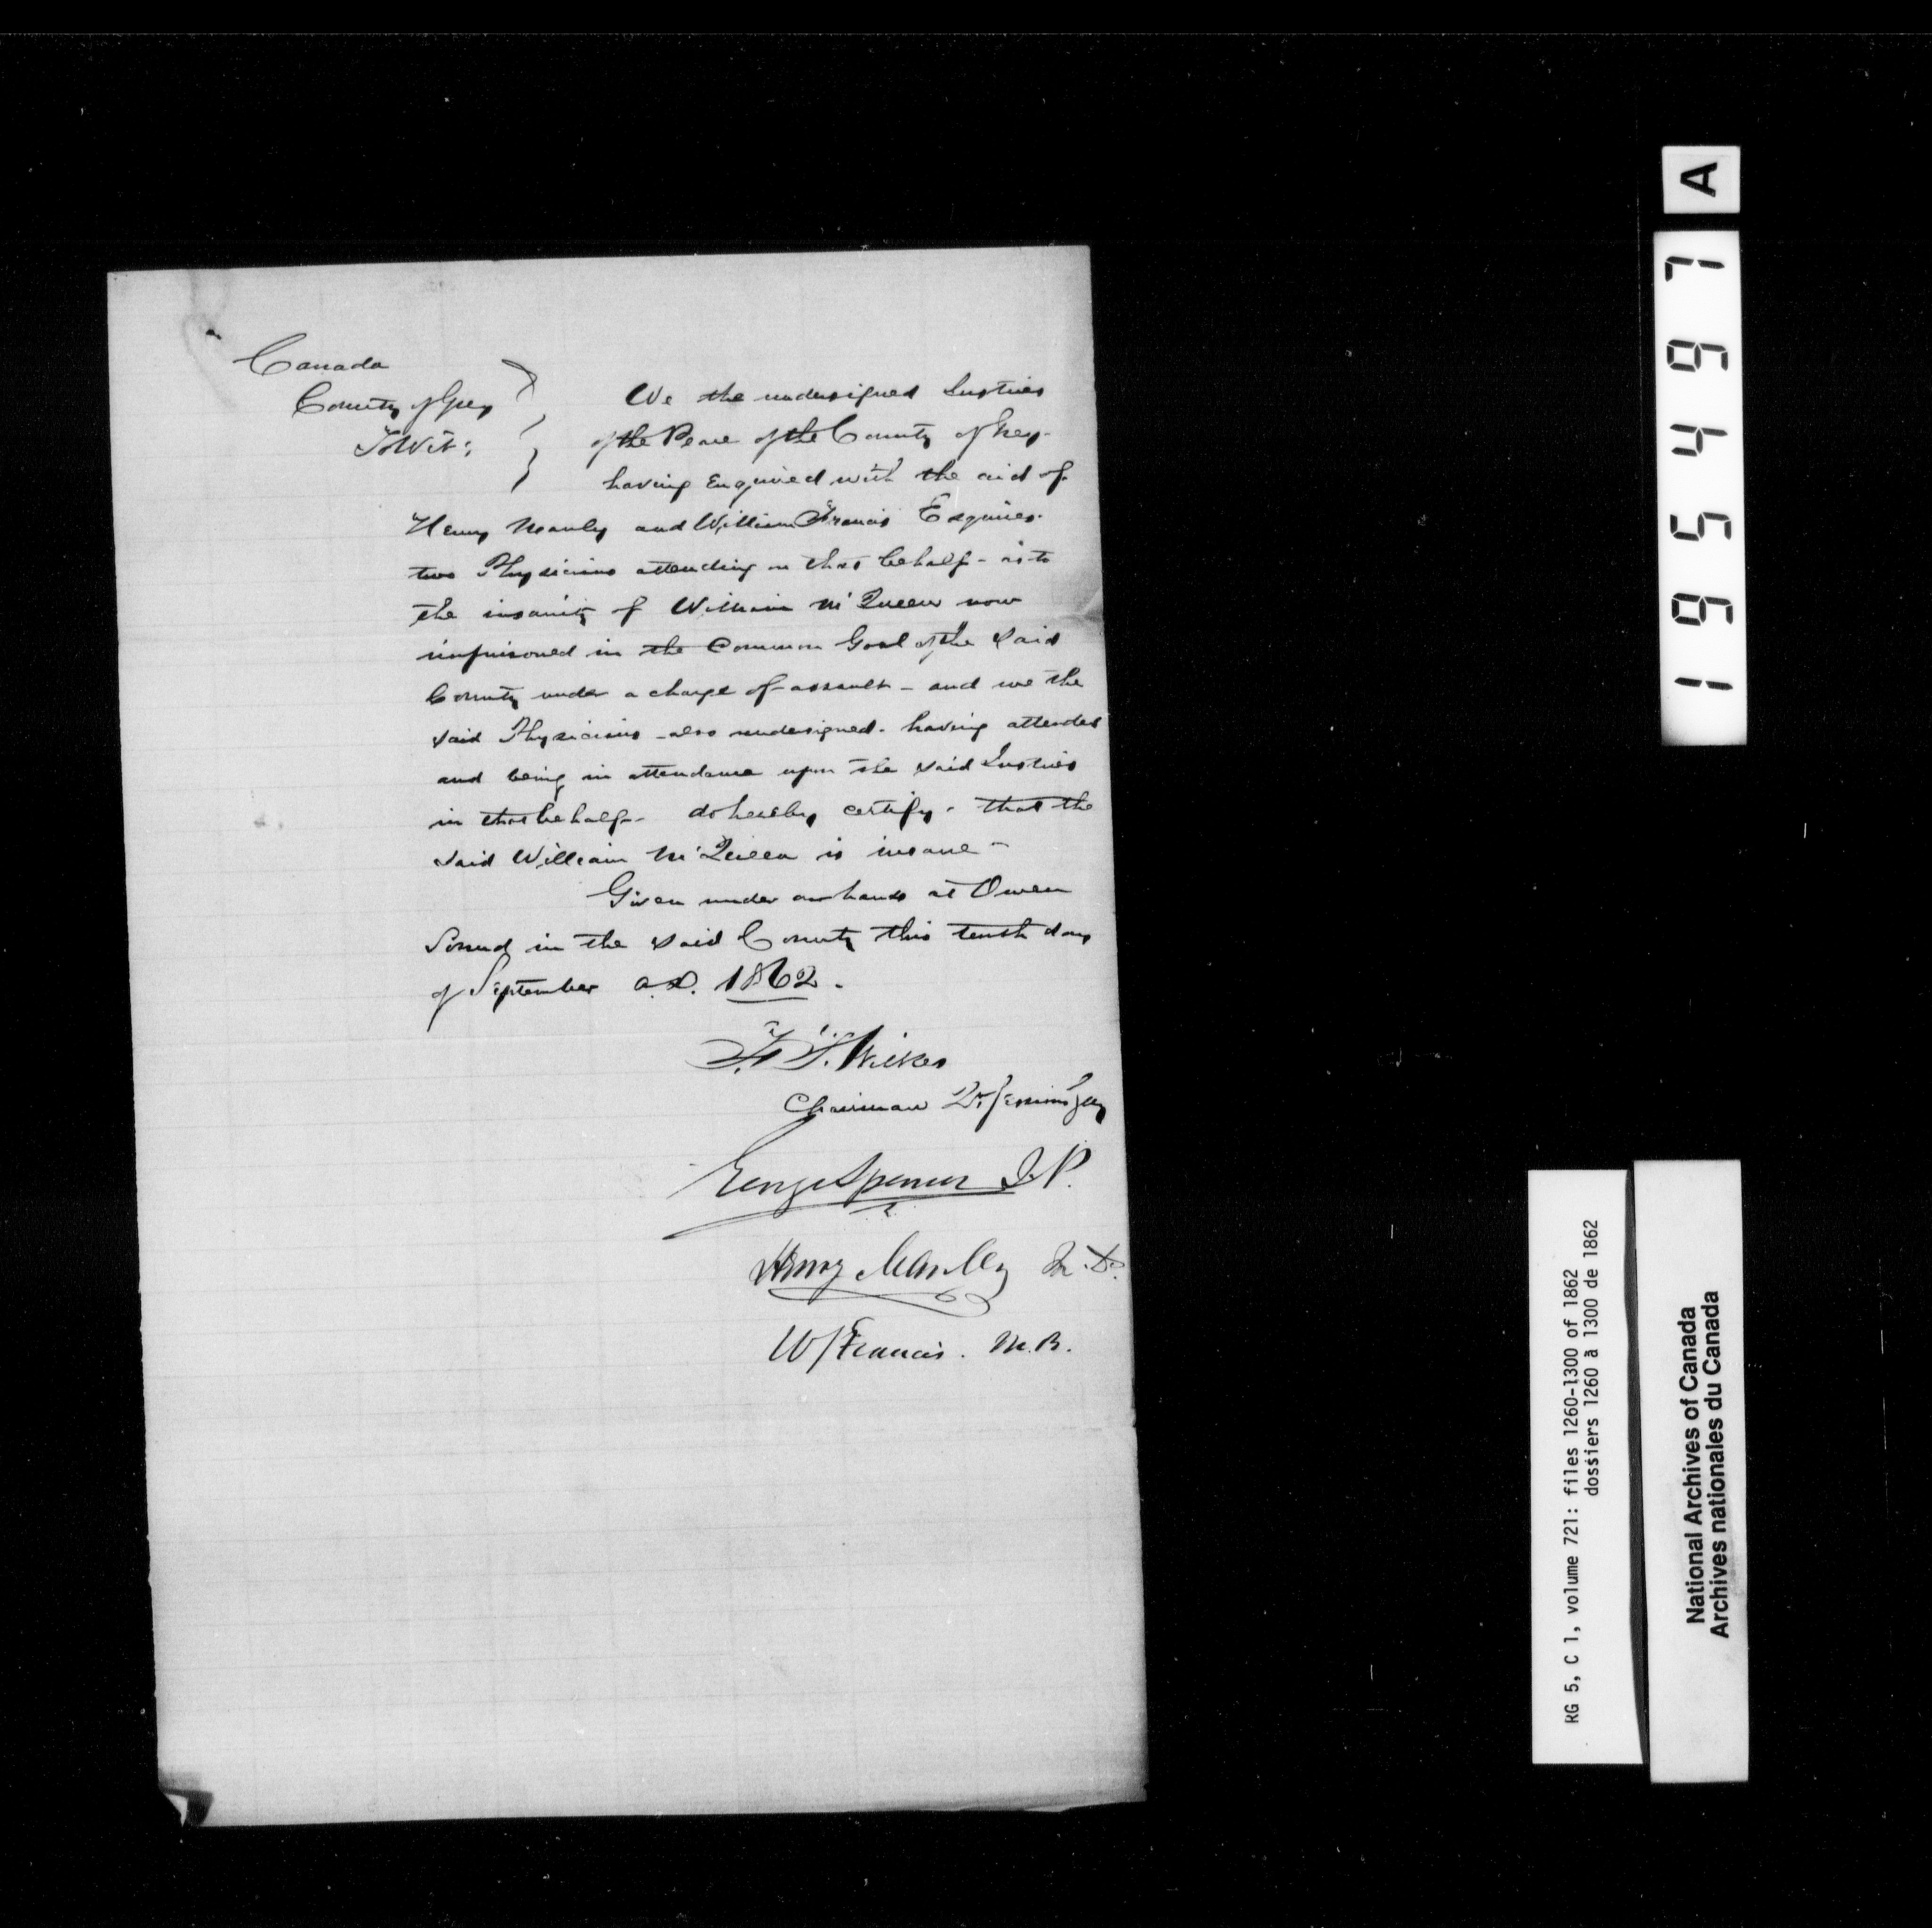 Canada
County of Grey
To Wit:
We the undersigned Justices
of the Peace of the County of Grey -
having Enquired with the aid of
Henry Manley and William Francis Esquires.
two Physicians attending on that behalf - as to
the insanity of William McQueen now
imprisoned in the Common Gaol of the Said
County under a charge of assault - and we the
said Physicians - also undersigned - having attended
and being in attendance upon the said Justices
in that behalf - do hereby certify - that the
said William McQueen is insane -
Given under our hands at Owen
Sound in the said County this tenth day
of September A.D. 1862.
Wilkes
Chairman Qr. Sessions Grey
George Spencer J.P.
Henry Manley M.D.
W Francis. M.B.
A
195497
RG 5, C 1, volume 721: files 1260-1300 of 1862
dossiers 1260 à 1300 de 1862
National Archives of Canada
Archives nationales du Canada